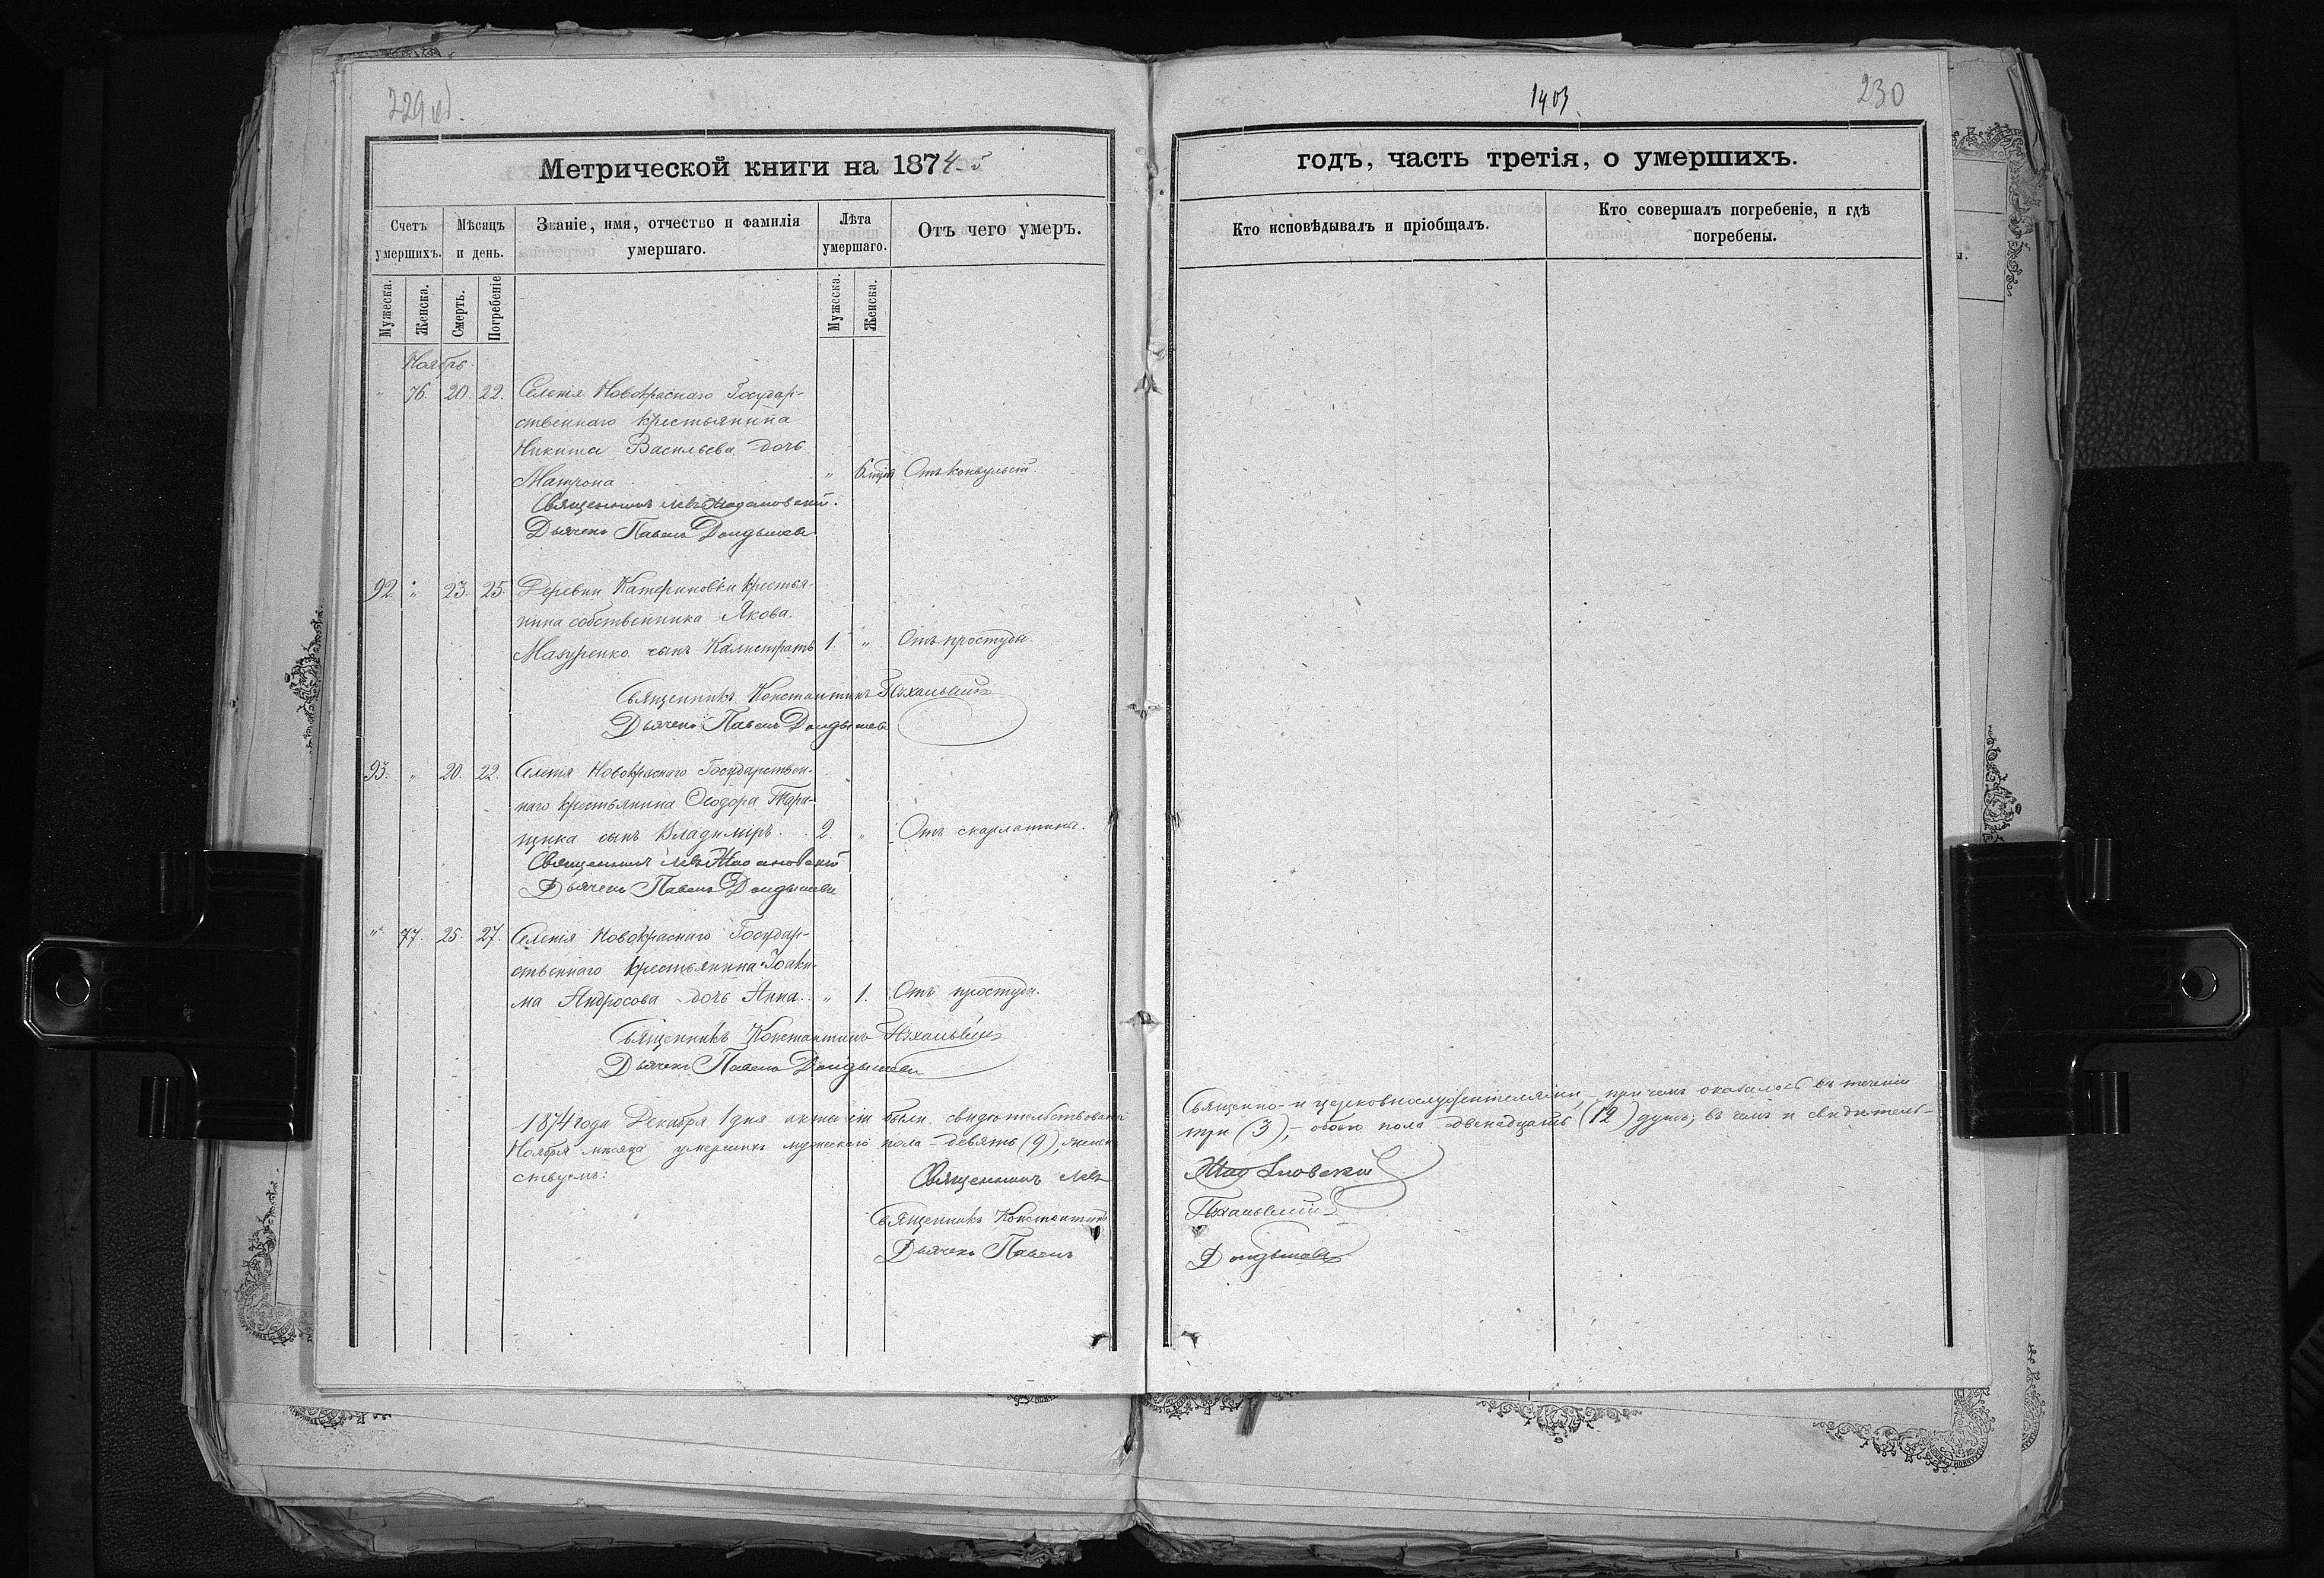 229 об.
Метрической книги на 1874-5
Счетъ умершихъ.
Мѣсяцъ и день.
Званіе, имя, отчество и фамилія умершаго.
Лѣта умершаго.
Отъ чего умеръ.
Мужеска.
Женска.
Смерть.
Погребеніе
Мужеска.
Женска.
Ноябрь.
" 76. 20. 22. Селенія Новокраснаго Государ-
ственнаго крестьянина
Никиты Васильева дочь
Матрона " 6 Отъ конвульсій.
Священникъ Левъ
Дьячекъ Павелъ
92 " 23. 25. Деревни Катериновки крестья-
нина собственника Якова
Мазуренко сынъ Калистратъ 1. " Отъ простуды.
Священникъ Константинъ
Дьячекъ Павелъ
93. " 20. 22. Селенія Новокраснаго Государствен-
наго крестьянина Ѳеодора Тара-
щика сынъ Владиміръ. 2. " Отъ скарлатины.
Священникъ Левъ
Дьячекъ Павелъ
" 77. 25. 27. Селенія Новокраснаго Государ-
ственнаго крестьянина Іоаки-
ма Андросова дочь Анна. " 1. Отъ простуды.
Священникъ Константинъ
Дьячекъ Павелъ
1874 года Декабря 1 дня акты сіи были свидѣтельствованы
Ноября мѣсяца умершихъ мужескаго пола девять (9), женск
ствуемъ:
Священникъ Левъ
Священникъ Константинъ
Дьячекъ Павелъ
1403
230
годъ, часть третія, о умершихъ.
Кто исповѣдывалъ и пріобщалъ.
Кто совершалъ погребеніе, и гдѣ
погребены.
Священно- и церковнослужителями, причемъ оказалось въ теченіи
три (3), обоего пола двенадцать (12) душъ; въ чемъ и свидѣтель-